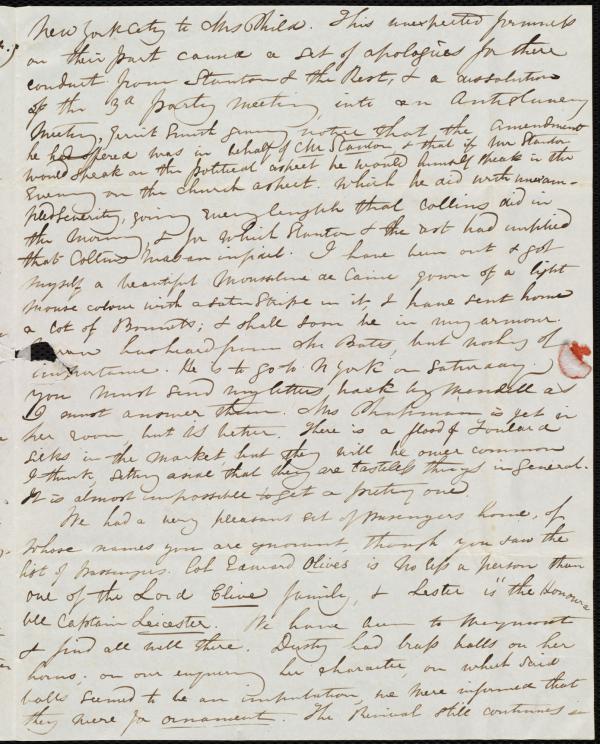 New York City to Mrs Child. This unexpected firmness
on their part caused a set of apologies for there
conduct from Stanton & the Rest, & a dissolution
of the 3d party meeting into an Antislavery
Meeting, Gerrit Smith giving notice that the amendment
he had offered was in behalf of Mr Stanton, & that if Mr Stanton
would speak on the political aspect he would himself speak in the
Evening on the church aspect. Which he did with unexam-
pled severity, going every length that Collins did in
the morning, & for which Stanton & the rest had implied
that Collins was an infidel. I have been out & got
myself a beautiful Mousseline de Laine gown of a light
mouse colour with a satin stripe in it, I have sent home
a lot of Bonnets; & shall soon be in my armour.
has heard from Mr Bates, but nothing of
importance. He is to go to N York on Saturday.
You must send my letters back by Mendell as
I must answer them. Mrs Chapman is yet in
her room, but is better. There is a flood of Foulard
silks in the market, but they will be over common
I think, setting aside that they are tasteless things in general.
It is almost impossible to get a pretty one.
We had a very pleasant set of passengers home, of
whose names you are ignorant, though you saw the
list of passengers. Col. Edward Olives is no less a person than
one of the Lord Clive family, & Lester is "the Honoura
ble Captain Leicester. We have been to Weymouth
& find all well there. Dusty had brass balls on her
horns; on our enquiring her character, on which said
balls seemed to be an imputation, we were informed that
they were for ornament. The Revival still continues in